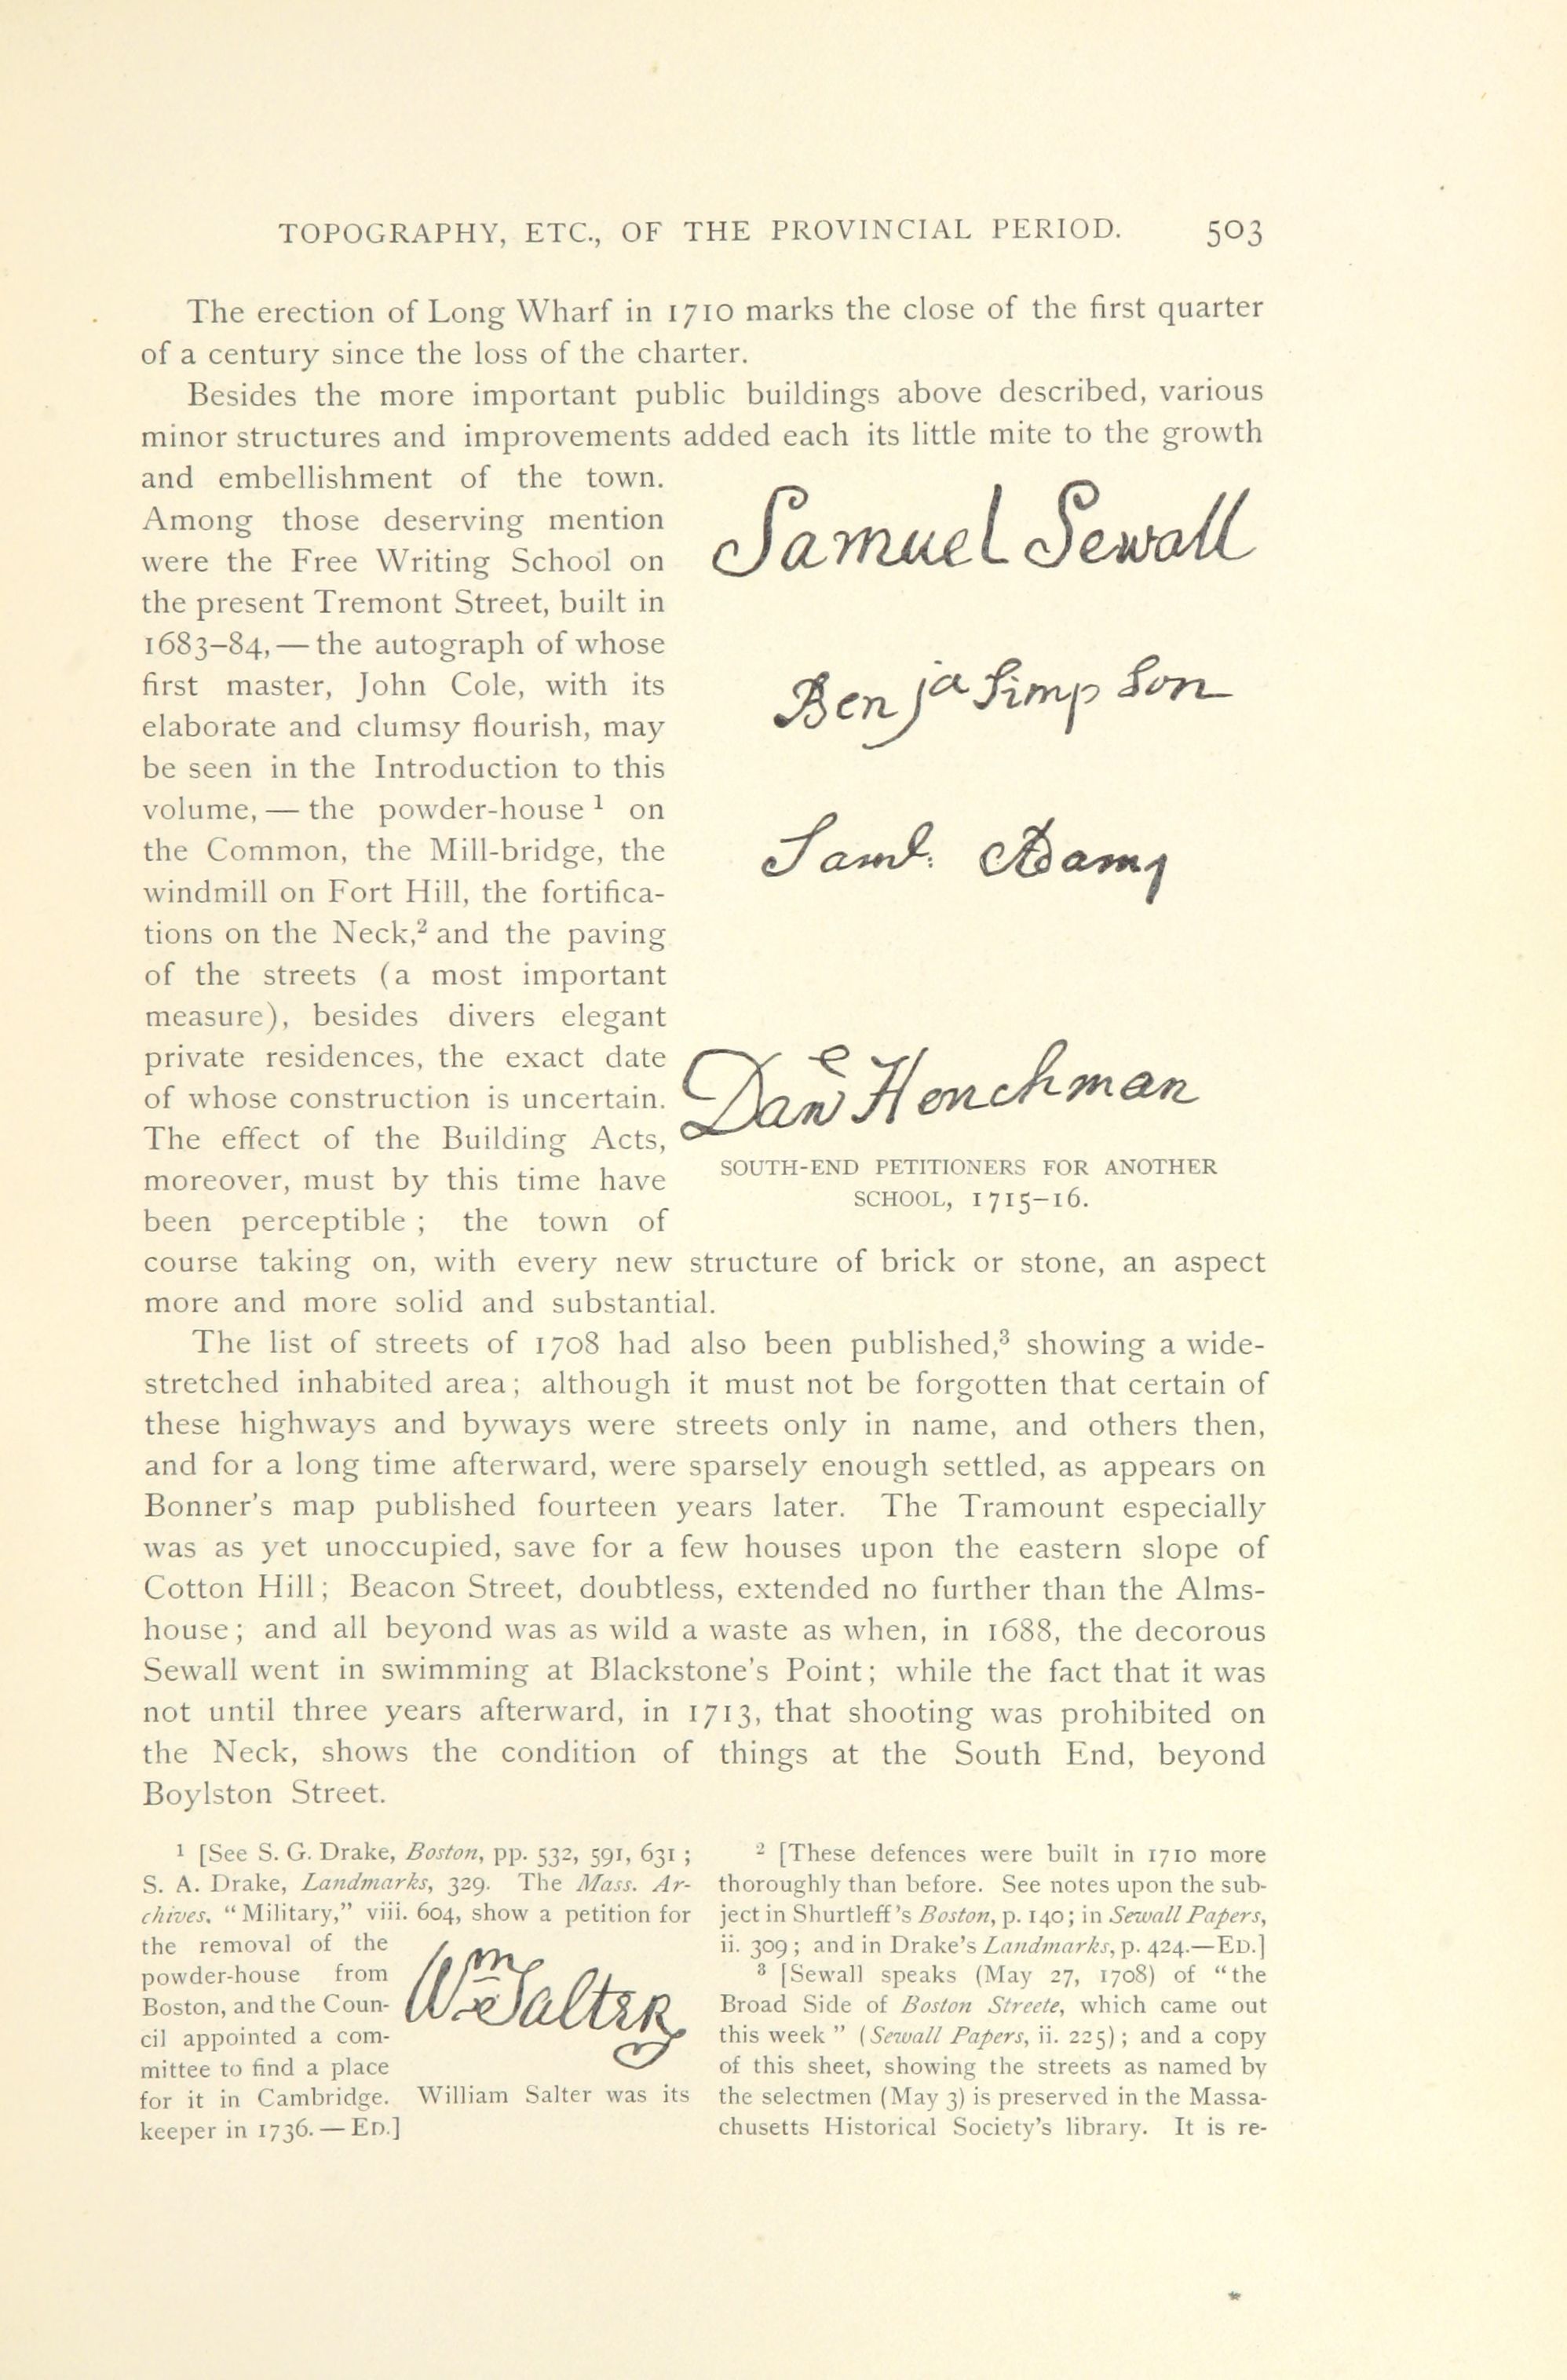 TOPOGRAPHY, ETC., OF THE PROVINCIAL PERIOD. 503
The erection of Long Wharf in 1710 marks the close of the first quarter
of a century since the loss of the charter.
Besides the more important public buildings above described, various
minor structures and improvements added each its little mite to the growth
and embellishment of the town.
Among those deserving mention
were the Free Writing School on
the present Tremont Street, built in
1683–84,—the autograph of whose
first master, John Cole, with its
elaborate and clumsy flourish, may
be seen in the Introduction to this
volume,—the powder-house ¹ on
the Common, the Mill-bridge, the
windmill on Fort Hill, the fortifica-
tions on the Neck,² and the paving
of the streets (a most important
measure), besides divers elegant
private residences, the exact date
of whose construction is uncertain.
The effect of the Building Acts,
moreover, must by this time have
been perceptible; the town of
Samuel Sewall
Benja Simpson
Saml. Adams
Danˡ Henchman
SOUTH-END PETITIONERS FOR ANOTHER
SCHOOL, 1715–16.
course taking on, with every new structure of brick or stone, an aspect
more and more solid and substantial.
The list of streets of 1708 had also been published,³ showing a wide-
stretched inhabited area; although it must not be forgotten that certain of
these highways and byways were streets only in name, and others then,
and for a long time afterward, were sparsely enough settled, as appears on
Bonner's map published fourteen years later. The Tramount especially
was as yet unoccupied, save for a few houses upon the eastern slope of
Cotton Hill; Beacon Street, doubtless, extended no further than the Alms-
house; and all beyond was as wild a waste as when, in 1688, the decorous
Sewall went in swimming at Blackstone's Point; while the fact that it was
not until three years afterward, in 1713, that shooting was prohibited on
the Neck, shows the condition of things at the South End, beyond
Boylston Street.
¹ [See S. G. Drake, Boston, pp. 532, 591, 631;
S. A. Drake, Landmarks, 329. The Mass. Ar-
chives, "Military," viii. 604, show a petition for
the removal of the
powder-house from
Boston, and the Coun-
cil appointed a com-
mittee to find a place
Wm Salter
for it in Cambridge. William Salter was its
keeper in 1736.—ED.]
² [These defences were built in 1710 more
thoroughly than before. See notes upon the sub-
ject in Shurtleff's Boston, p. 140; in Sewall Papers,
ii. 309; and in Drake's Landmarks, p. 424.—ED.]
³ [Sewall speaks (May 27, 1708) of "the
Broad Side of Boston Streete, which came out
this week" (Sewall Papers, ii. 225); and a copy
of this sheet, showing the streets as named by
the selectmen (May 3) is preserved in the Massa-
chusetts Historical Society's library. It is re-